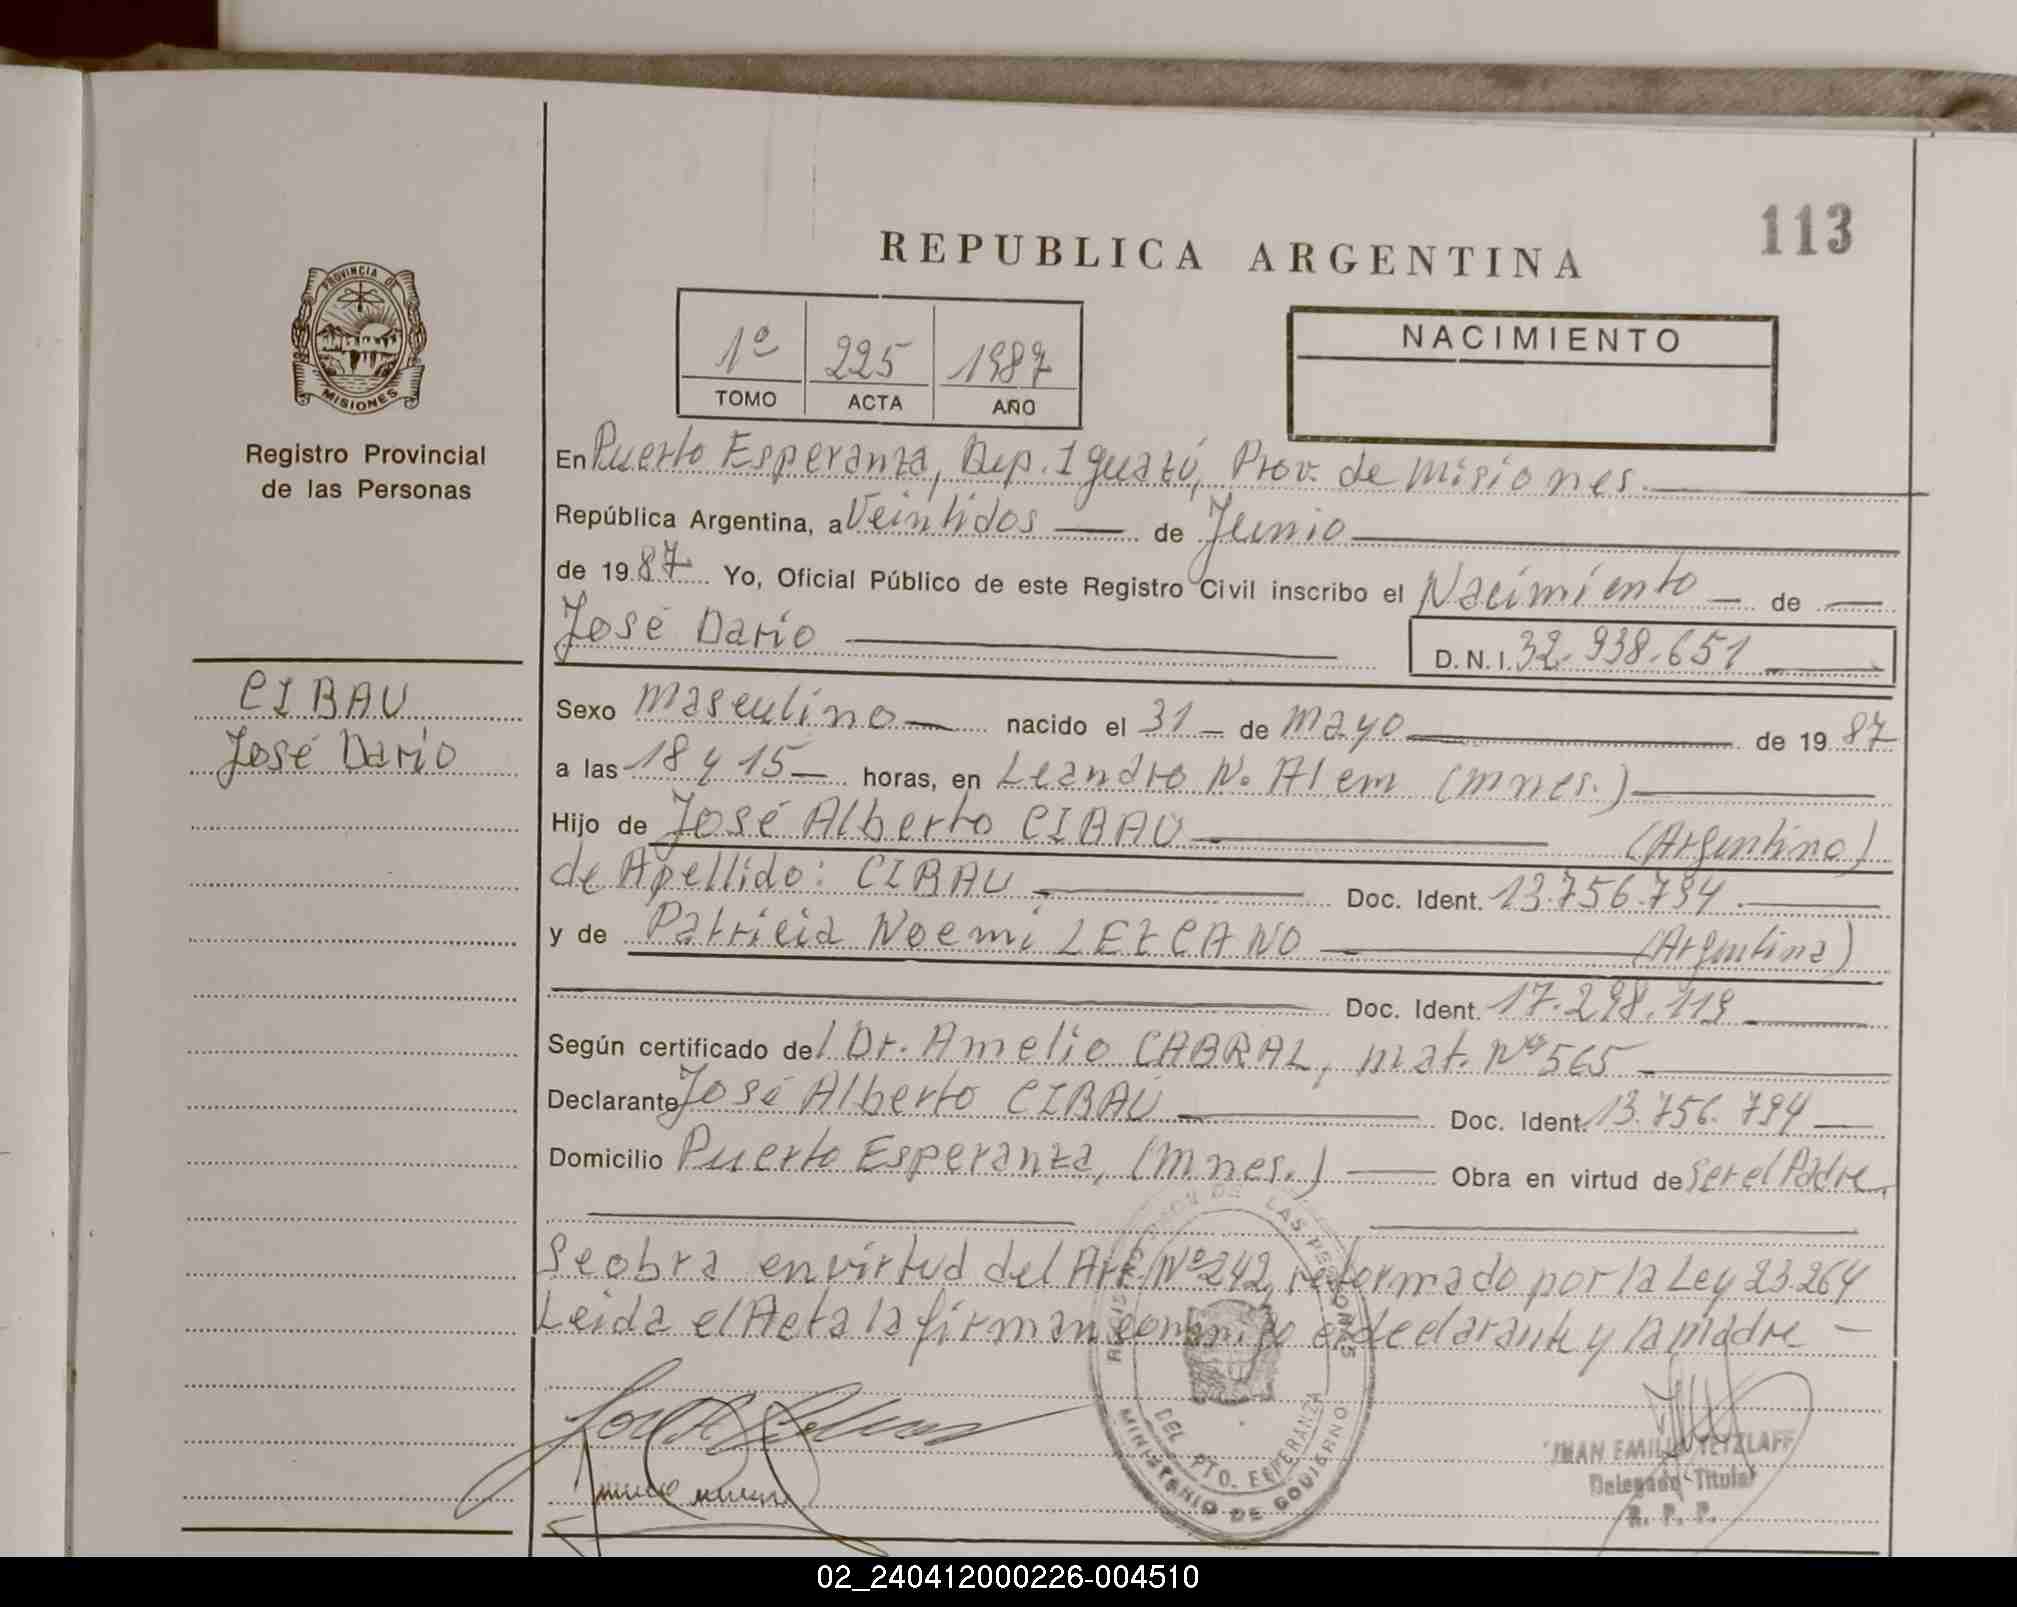 113
REPUBLICA ARGENTINA
PROVINCIA DE
MISIONES
Registro Provincial
de las Personas
1º 225 1987
TOMO ACTA AÑO
NACIMIENTO
En Puerto Esperanza, Dep. Iguazú, Prov. de Misiones.
República Argentina, a Veintidos de Junio
de 1987 Yo, Oficial Público de este Registro Civil inscribo el Nacimiento de
José Dario
D.N.I. 32.938.651
CIBAU
José Dario
Sexo Masculino nacido el 31 de Mayo de 1987
a las 18 y 15 horas, en Leandro N. Alem (Mnes.)
Hijo de José Alberto CIBAU (Argentino)
de Apellido: CIBAU Doc. Ident. 13.756.794
y de Patricia Noemi LEZCANO (Argentina)
Doc. Ident. 17.298.119
Según certificado del Dr. Amelio CABRAL, mat. Nº 565
Declarante José Alberto CIBAU Doc. Ident. 13.756.794
Domicilio Puerto Esperanza, (Mnes.) Obra en virtud de ser el Padre.
Se obra en virtud del Art. Nº 242, reformado por la Ley 23.264
Leida el Acta la firman conmigo el declarante y la madre
LAS PERSONAS
DEL PTO. ESPERANZA
MINISTERIO DE GOBIERNO
JUAN EMILIO TETZLAFF
Delegado Titular
R. P. P.
02_240412000226-004510